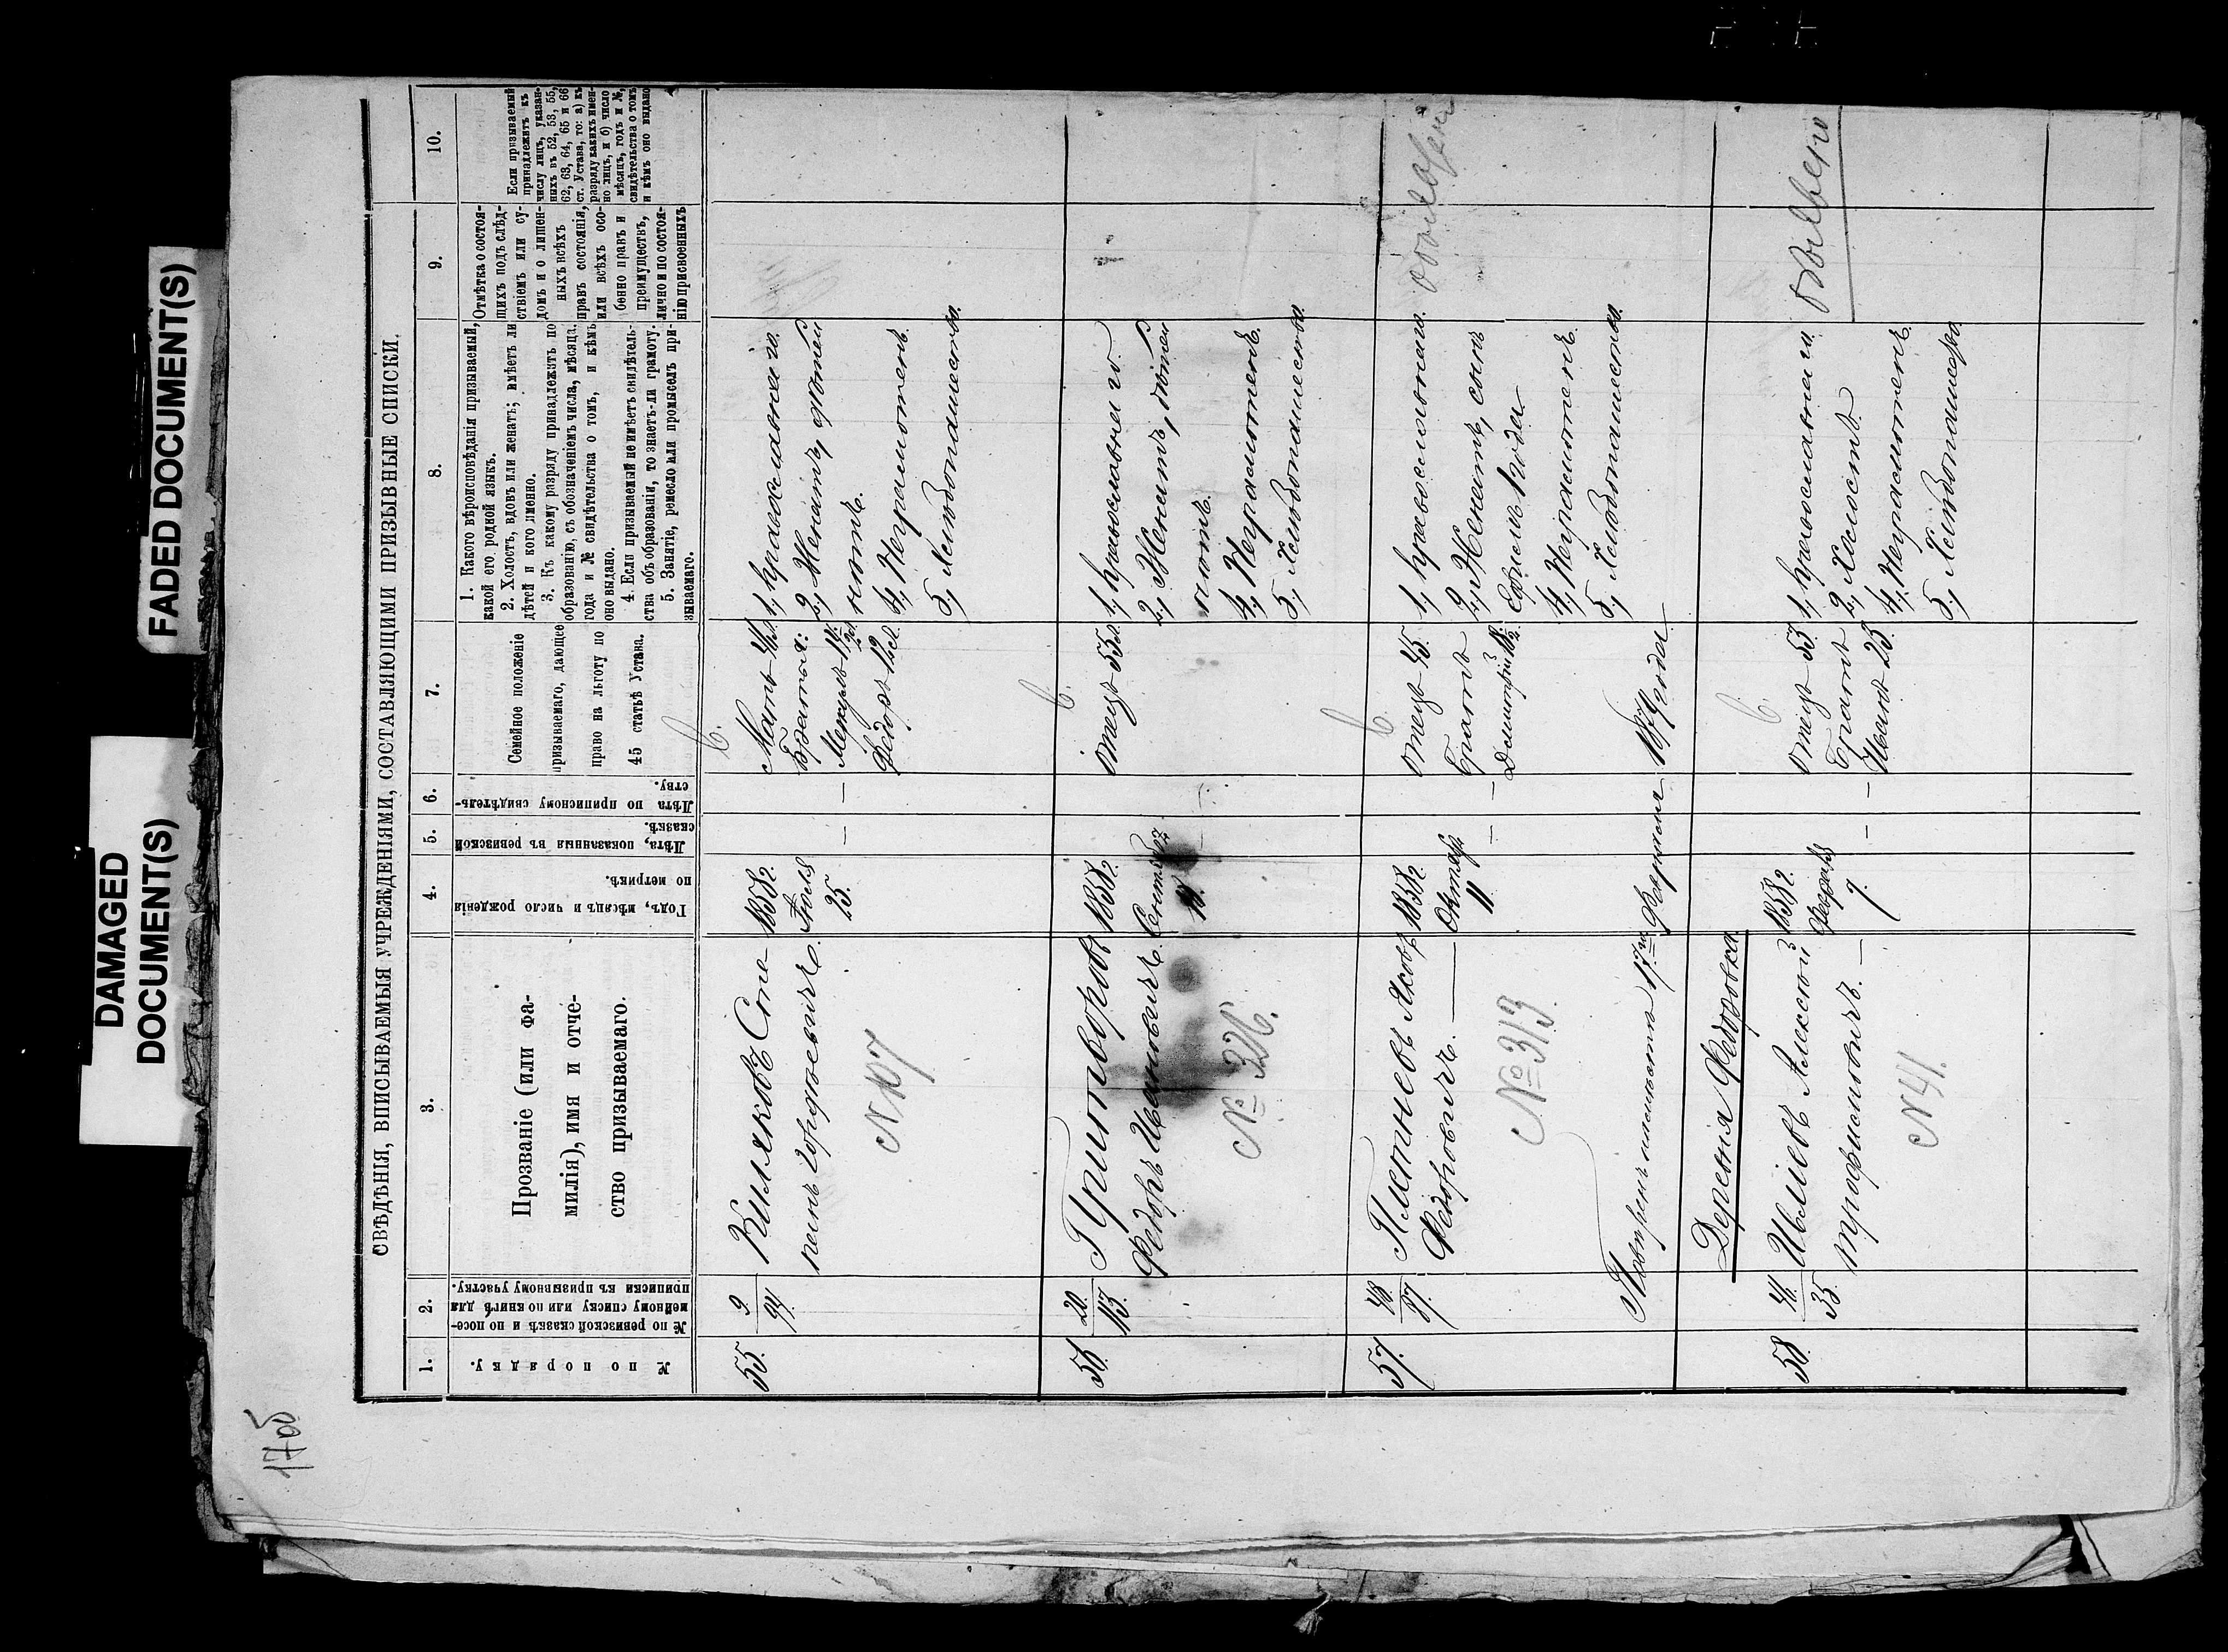 FADED DOCUMENT(S)
DAMAGED
DOCUMENT(S)
17об
СВѢДѢНІЯ, ВПИСЫВАЕМЫЯ УЧРЕЖДЕНІЯМИ, СОСТАВЛЯЮЩИМИ ПРИЗЫВНЫЕ СПИСКИ.
1.
2.
3.
4.
5.
6.
7.
8.
9.
10.
№ по порядку.
№ по ревизской сказкѣ и по посе-
мейному списку или по книгѣ для
приписки къ призывному участку.
Прозваніе (или фа-
милія), имя и отче-
ство призываемаго.
Годъ, мѣсяцъ и число рожденія
по метрикѣ.
Лѣта, показанныя въ ревизской
сказкѣ.
Лѣта по приписному свидѣтель-
ству.
Семейное положеніе
призываемаго, дающее
право на льготу по
45 статьѣ Устава.
1. Какого вѣроисповѣданія призываемый,
какой его родной языкъ.
2. Холостъ, вдовъ или женатъ; имѣетъ ли
дѣтей и кого именно.
3. Къ какому разряду принадлежитъ по
образованію, съ обозначеніемъ числа, мѣсяца,
года и № свидѣтельства о томъ, и кѣмъ
оно выдано.
4. Если призываемый не имѣетъ свидѣтель-
ства объ образованіи, то знаетъ-ли грамоту.
5. Занятіе, ремесло или промыселъ при-
зываемаго.
Отмѣтка о состоя-
щихъ подъ слѣд-
ствіемъ или су-
домъ и о лишен-
ныхъ всѣхъ
правъ состоянія,
или всѣхъ осо-
бенно правъ и
преимуществъ,
лично и по состоя-
нію присвоенныхъ
Если призываемый
принадлежитъ къ
числу лицъ, указан-
ныхъ въ 52, 53, 55,
62, 63, 64, 65 и 66
ст. Устава, то: а) къ
разряду какихъ имен-
но лицъ, и б) число
мѣсяцъ, годъ и №,
свидѣтельства о томъ
и кѣмъ оно выдано
55.
9
94.
Киляковъ Сте-
пенъ Гордѣевичъ.
N 107
1858г.
Іюля
25.
Мать
Братья:
Меркулъ 14
Федоръ 12л.
1, православнаго.
2, Женатъ, дѣтей
нѣтъ.
4, Неграмотенъ.
5, Хлѣбопашество.
56.
20.
113.
Григоворовъ
Федоръ Ивановичъ.
№ 326.
1858г.
Сентября
Отецъ 55л.
1, православнаго.
2, Женатъ, дѣтей
нѣтъ.
4, Неграмотенъ.
5, Хлѣбопашество.
57.
48
87.
Плетневъ Яковъ
Федоровичъ.
№ 313.
1858г.
Октября
11
Отецъ 45.
Братъ
Дмитрій
1, православнаго.
2, Женатъ, сынъ
Ефимъ 1 года
4, Неграмотенъ.
5, Хлѣбопашество.
17го Февраля 1879 года.
Деревня Федоровка.
58.
44
35.
Ивлиевъ Алексѣй
Трофимовичъ.
N 41.
1858г.
Февраля
7.
Отецъ 53
Братъ
Иванъ 23.
1, православнаго.
2, Холостъ
4, Неграмотенъ.
5, Хлѣбопашество